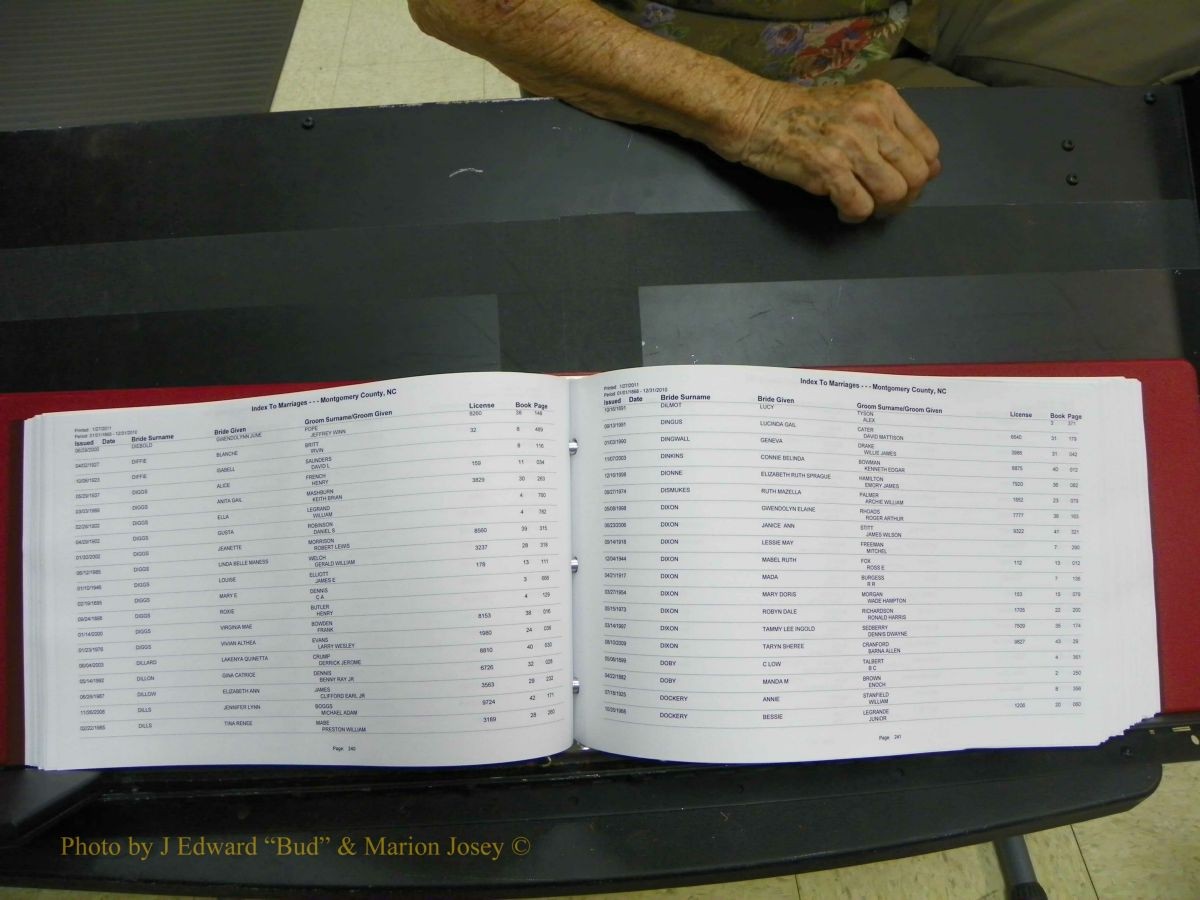 Index To Marriages - - - Montgomery County, NC
Printed: 1/27/2011
Period: 01/01/1868 - 12/31/2010
Issued Date Bride Surname Bride Given Groom Surname/Groom Given License Book Page
DIEBOLD GWENDOLYNN JUNE POPE 9260 38 148
JEFFREY WINN
04/02/1927 DIFFIE BLANCHE BRITT 32 8 489
IRVIN
DIFFIE ISABELL SAUNDERS 8 116
DAVID L
05/29/1937 DIGGS ALICE FRENCH 159 11 034
HENRY
DIGGS ANITA GAIL MASHBURN 3829 30 263
KEITH BRIAN
DIGGS ELLA LEGRAND 4 760
WILLIAM
04/29/1902 DIGGS GUSTA ROBINSON 4 762
DANIEL S
DIGGS JEANETTE MORRISON 8560 39 315
ROBERT LEWIS
DIGGS LINDA BELLE MANESS WELCH 3237 28 318
GERALD WILLIAM
DIGGS LOUISE ELLIOTT 178 13 111
JAMES E
DIGGS MARY E DENNIS 3
C A
DIGGS ROXIE BUTLER 4 129
HENRY
01/14/2000 DIGGS VIRGINIA MAE BOWDEN 8153 38 016
FRANK
01/23/1976 DIGGS VIVIAN ALTHEA EVANS 1980 24 036
LARRY WESLEY
DILLARD LAKENYA QUINETTA CRUMP 8810 40 030
DERRICK JEROME
05/14/1992 DILLON GINA CATRICE DENNIS 6726 32 028
BENNY RAY JR
DILLOW ELIZABETH ANN JAMES 3563 29 232
CLIFFORD EARL JR
11/26/2008 DILLS JENNIFER LYNN BOGGS 9724 42 171
MICHAEL ADAM
02/22/1985 DILLS TINA RENEE MABE 3169 28 260
PRESTON WILLIAM
Page: 240
Index To Marriages - - - Montgomery County, NC
Printed: 1/27/2011
Period: 01/01/1868 - 12/31/2010
Issued Date Bride Surname Bride Given Groom Surname/Groom Given License Book Page
10/16/1891 DILMOT LUCY TYSON 3 371
ALEX
09/13/1991 DINGUS LUCINDA GAIL CATER 6540 31 179
DAVID MATTISON
01/03/1990 DINGWALL GENEVA DRAKE 31 042
WILLIE JAMES
11/07/2003 DINKINS CONNIE BELINDA BOWMAN 8875 40 012
KENNETH EDGAR
12/16/1998 DIONNE ELIZABETH RUTH SPRAGUE HAMILTON 7920 36 082
EMORY JAMES
09/27/1974 DISMUKES RUTH MAZELLA PALMER 23 079
ARCHIE WILLIAM
05/08/1998 DIXON GWENDOLYN ELAINE RHOADS 7777 36 163
ROGER ARTHUR
06/23/2006 DIXON JANICE ANN STITT 9322 41 321
JAMES WILSON
DIXON LESSIE MAY FREEMAN 7
MITCHEL
12/04/1944 DIXON MABEL RUTH FOX 112 13 012
ROSS E
04/21/1917 DIXON MADA BURGESS 7
R R
03/27/1954 DIXON MARY DORIS MORGAN 153 15 079
WADE HAMPTON
DIXON ROBYN DALE RICHARDSON 1705 22 200
RONALD HARRIS
03/14/1997 DIXON TAMMY LEE INGOLD SEDBERRY 7509 35 174
DENNIS DWAYNE
DIXON TARYN SHEREE CRANFORD 9827 43 29
BARNA ALLEN
DOBY C LOW TALBERT 4 361
B C
04/22/1882 DOBY MANDA M BROWN 2 250
ENOCH
07/18/1925 DOCKERY ANNIE STANFIELD 8 356
WILLIAM
DOCKERY BESSIE LEGRANDE 1206 20 060
JUNIOR
Page: 241
Photo by J Edward “Bud” & Marion Josey ©